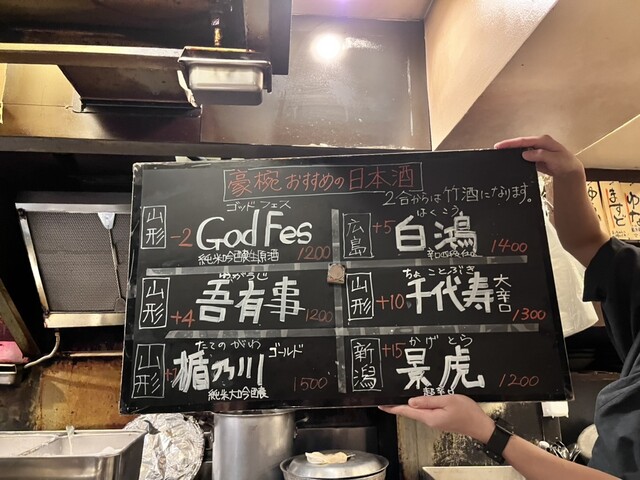 豪椀おすすめの日本酒
2合からは竹酒になります。
山形
-2
ゴッドフェス
God Fes
純米吟醸生原酒
1200
広島
+5
はくこう
白鴻
1400
山形
+4
わがうじ
吾有事
1200
山形
+10
ちょことぶき
千代寿
大辛口
1300
山形
たてのがわ
楯乃川
ゴールド
純米大吟醸
1500
新潟
+15
かげとら
景虎
超辛口
1200